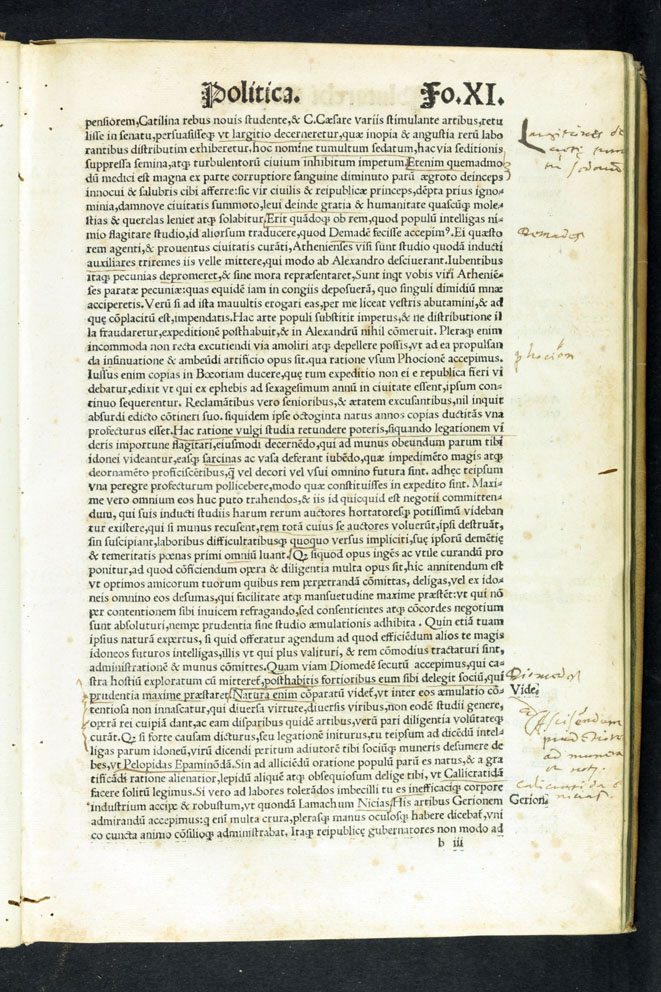 Politica. Fo.XI.
pensiorem, Catilina rebus nouis studente, & C. Cæsare variis stimulante artibus, retu
lisse in senatu, persuasisseqȝ vt largitio decerneretur, quæ inopia & angustia rerū labo
rantibus distributim exhiberetur, hoc nomine tumultum sedatum, hac via seditionis
suppressa semina, atqȝ turbulentorū ciuium inhibitum impetum. Etenim quemadmo
dū medici est magna ex parte corruptiore sanguine diminuto parū ægroto deinceps
innocui & salubris cibi afferre: sic vir ciuilis & reipublicæ princeps, dēpta prius igno-
minia, damnove ciuitatis summoto, leui deinde gratia & humanitate quascūqȝ mole-
stias & querelas leniet atqȝ solabitur. Erit quādoqȝ ob rem, quod populū intelligas ni-
mio flagitare studio, id aliorsum traducere, quod Demadē fecisse accepimꝰ. Ei quæsto
rem agenti, & prouentus ciuitatis curāti, Athenienses visi sunt studio quodā inducti
auxiliares triremes iis velle mittere, qui modo ab Alexandro desciuerant. Iubentibus
itaqȝ pecunias depromeret, & sine mora repræsentaret, Sunt inqt vobis viri Atheniē-
ses paratæ pecuniæ: quas equidē iam in congiis deposuerā, quo singuli dimidiū mnæ
acciperetis. Verū si ad ista mauultis erogari eas, per me liceat vestris abutamini, & ad
quę cōplacitū est, impendatis. Hac arte populi substitit impetus, & ne distributione il
la fraudaretur, expeditionē posthabuit, & in Alexandrū nihil cōmeruit. Pleraqȝ enim
incommoda non recta excutiendi via amoliri atqȝ depellere possis, vt ad ea propulsan
da insinuatione & ambeūdi artificio opus sit. qua ratione vsum Phocionē accepimus.
Iussus enim copias in Bœotiam ducere, quę tum expeditio non ei e republica fieri vi
debatur, edixit vt qui ex ephebis ad sexagesimum annū in ciuitate essent, ipsum con-
tinuo sequerentur. Reclamātibus vero senioribus, & ætatem excusantibus, nil inquit
absurdi edicto cōtineri suo. siquidem ipse octoginta natus annos copias ductitās vna
profecturus esset. Hac ratione vulgi studia retundere poteris, siquando legationem vi
deris importune flagitari, eiusmodi decernēdo, qui ad munus obeundum parum tibi
idonei videantur, easqȝ sarcinas ac vasa deferant iubēdo, quæ impedimēto magis atqȝ
deornamēto proficiscētibus, q̄ vel decori vel vsui omnino futura sint. adhęc teipsum
vna peregre profecturum pollicebere, modo quæ constituisses in expedito sint. Maxi-
me vero omnium eos huc puto trahendos, & iis id quicquid est negotii committen-
dum, qui suis inducti studiis harum rerum auctores hortatoresqȝ potissimū videban
tur existere, qui si munus recusent, rem totā cuius se auctores voluerūt, ipsi destruāt,
sin suscipiant, laboribus difficultatibusqȝ quoquo versus impliciti, suę ipsorū demētię
& temeritatis pœnas primi omniū luant. Qȝ siquod opus ingēs ac vtile curandū pro
ponitur, ad quod cōficiendum opera & diligentia multa opus sit, hic annitendum est
vt optimos amicorum tuorum quibus rem perpetrandā cōmittas, deligas, vel ex ido-
neis omnino eos desumas, qui facilitate atqȝ mansuetudine maxime præstēt: vt qui nō
per contentionem sibi inuicem refragando, sed consentientes atqȝ cōcordes negotium
sunt absoluturi, nempe prudentia sine studio æmulationis adhibita. Quin etiā tuam
ipsius naturā expertus, si quid offeratur agendum ad quod efficiēdum alios te magis
idoneos futuros intelligas, illis vt qui plus valituri, & rem cōmodius tractaturi sint,
administrationē & munus cōmittes. Quam viam Diomedē secutū accepimus, qui ca-
stra hostiū exploratum cū mitteret, posthabitis fortioribus eum sibi delegit sociū, qui
prudentia maxime præstaret. Natura enim cōparatū videt, vt inter eos æmulatio cō-
tentiosa non innascatur, qui diuersa virtute, diuersis viribus, non eodē studii genere,
operā rei cuipiā dant, ac eam disparibus quidē artibus, verū pari diligentia volūtateqȝ
curāt. Qȝ si forte causam dicturus, seu legationē initurus, tu teipsum ad dicēdū intel-
ligas parum idoneū, virū dicendi peritum adiutorē tibi sociūqȝ muneris desumere de
bes, vt Pelopidas Epaminōdā. Sin ad alliciēdū oratione populū parū es natus, & a gra
tificādi ratione alienatior, lepidū aliquē atqȝ obsequiosum delige tibi, vt Callicratidā
facere solitū legimus. Si vero ad labores tolerādos imbecilli tu es inefficaciqȝ corpore
industrium accipe & robustum, vt quondā Lamachum Nicias. His artibus Gerionem
admirandū accepimus: q enī multa crura, plerasqȝ manus oculosqȝ habere dicebat, vni
co cuncta animo cōsilioqȝ administrabat. Itaqȝ reipublicę gubernatores non modo ad
b iii
Demades
phocion
Diomedes
Vide.
Gerion.